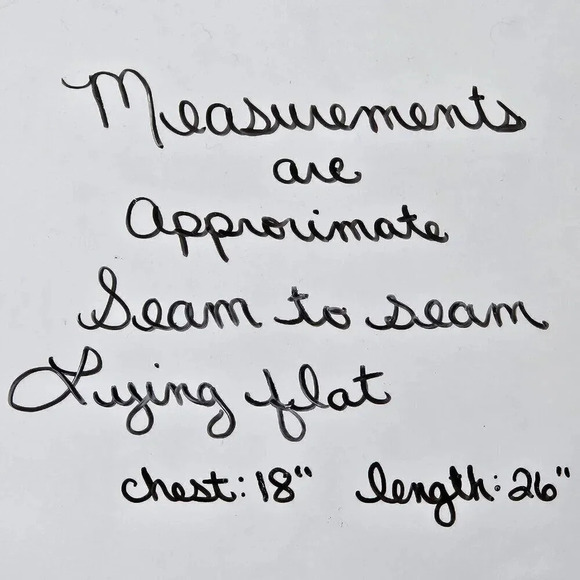 Measurements
are
Approximate
Seam to seam
Lying flat
chest: 18" length: 26"